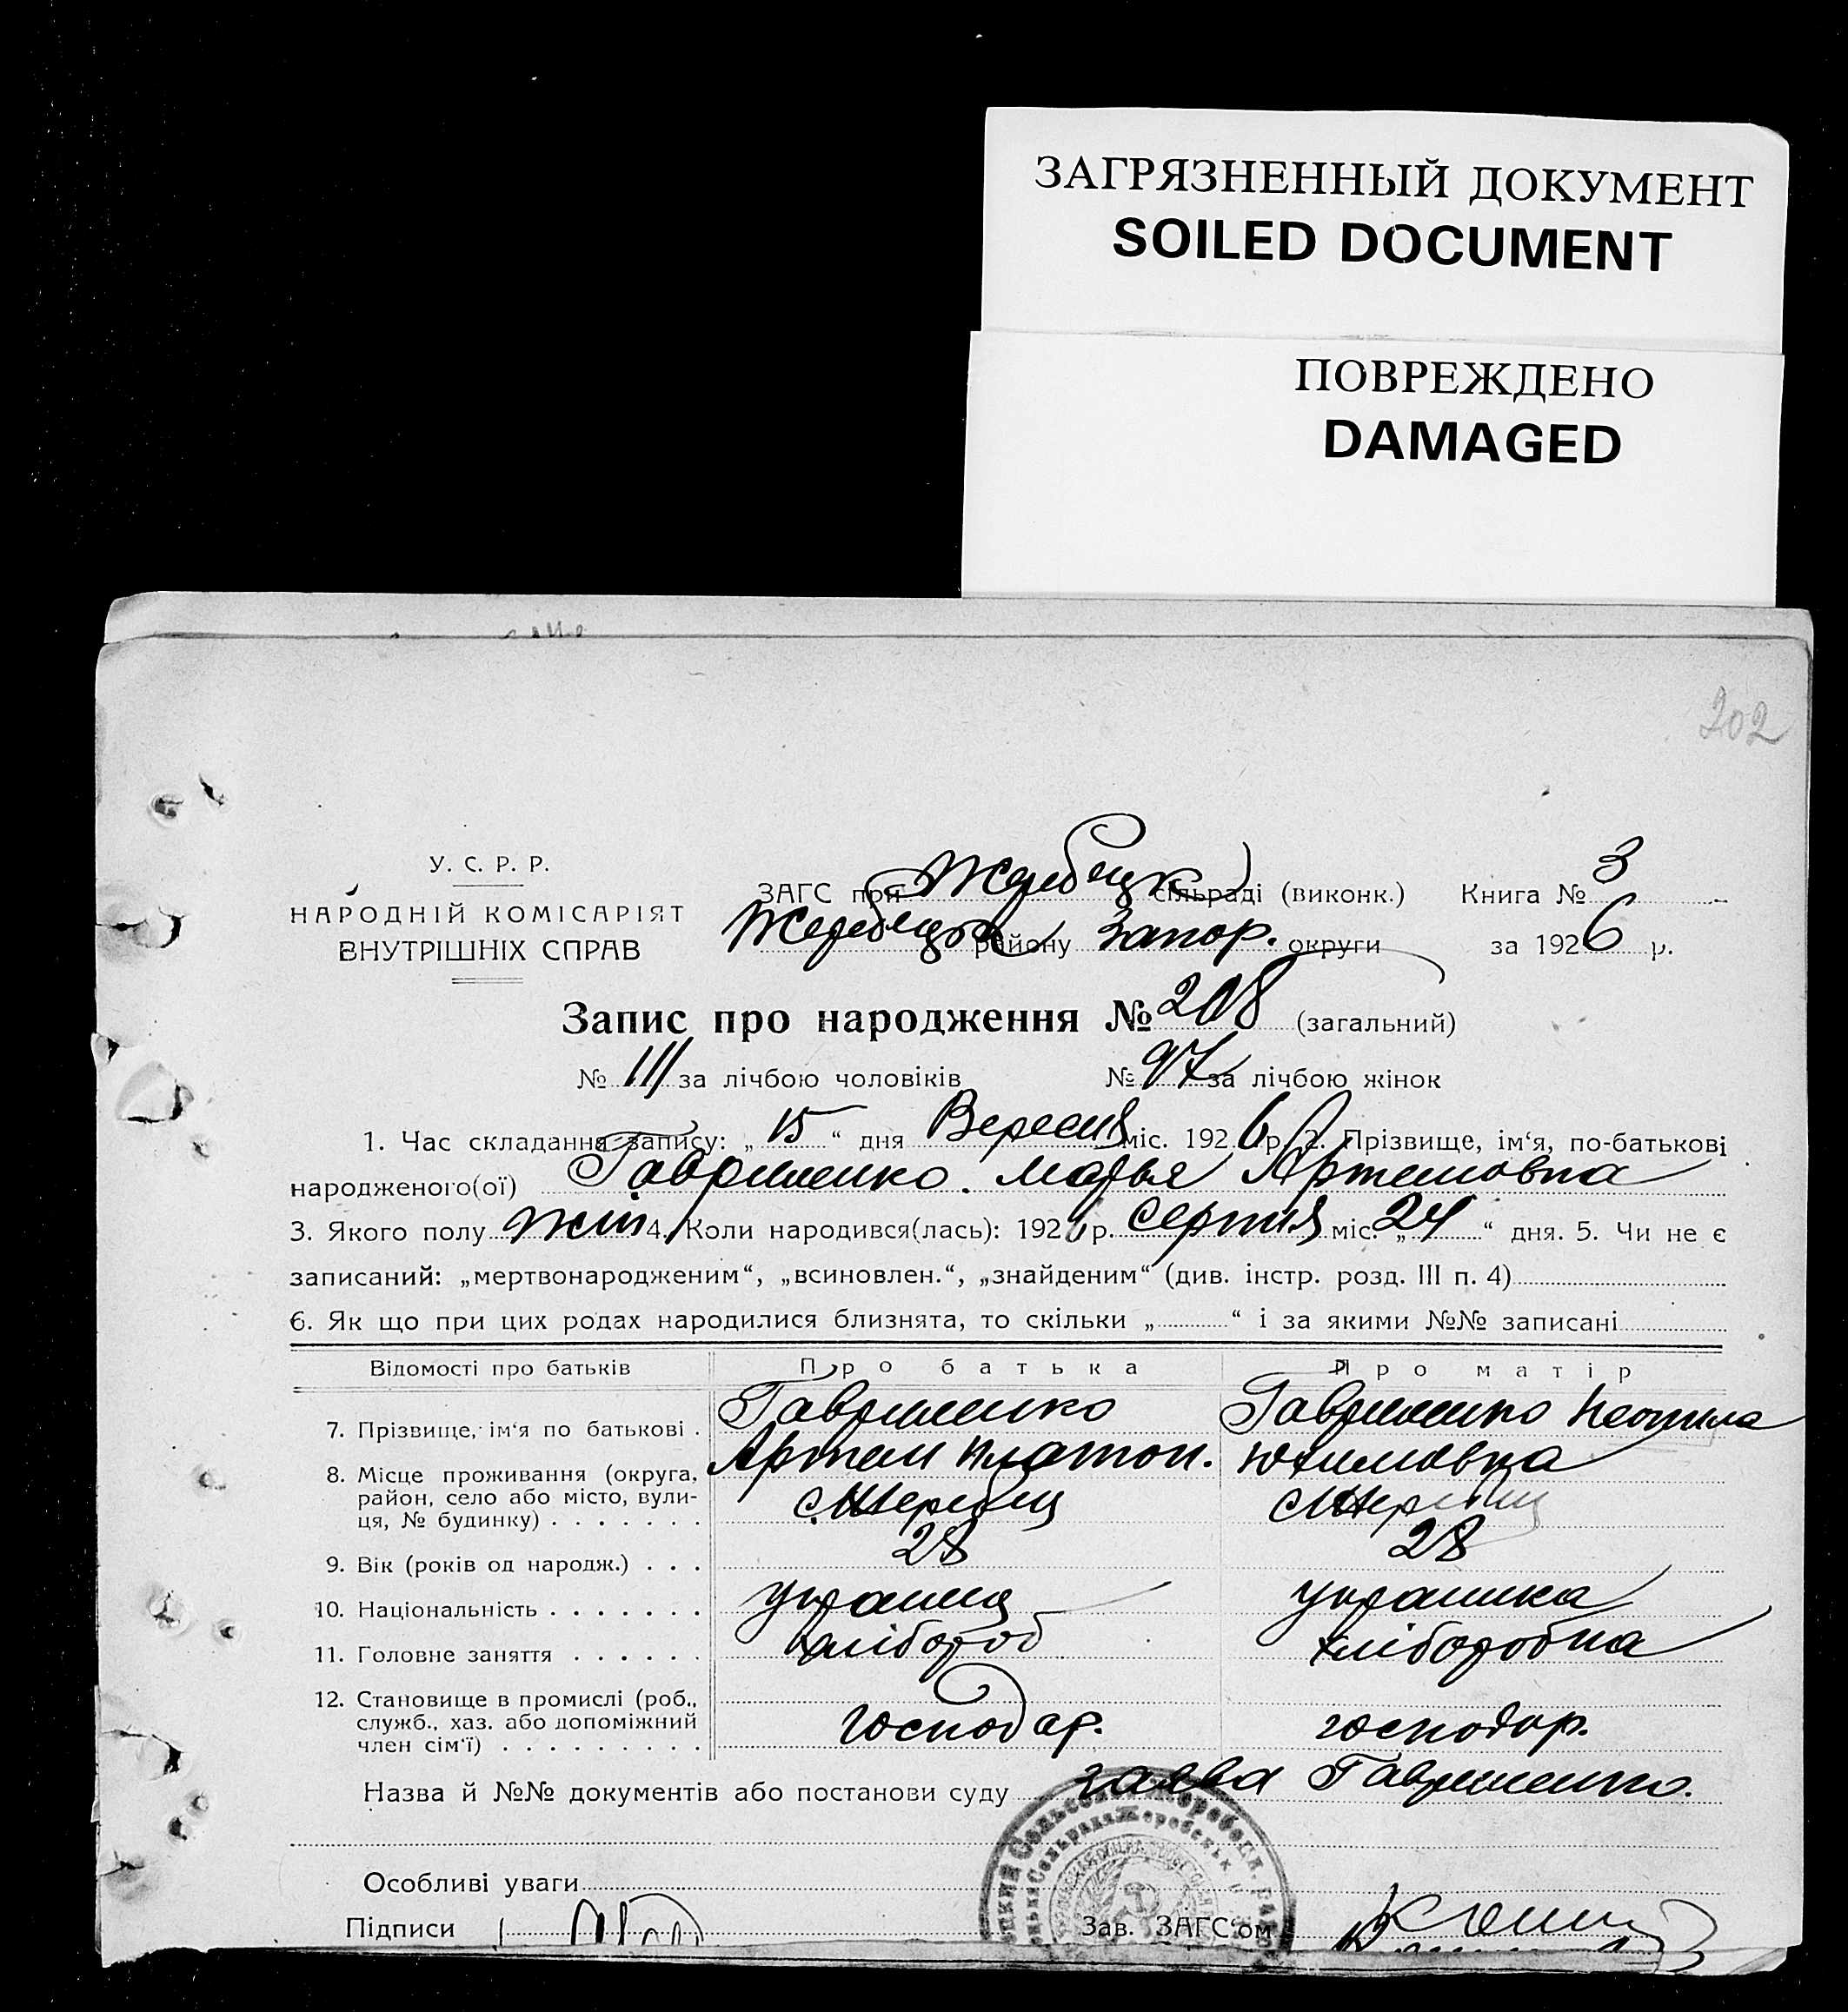 ЗАГРЯЗНЕННЫЙ ДОКУМЕНТ
SOILED DOCUMENT
ПОВРЕЖДЕНО
DAMAGED
202
У. С. Р. Р.
НАРОДНІЙ КОМІСАРІЯТ
ВНУТРІШНІХ СПРАВ
ЗАГС при Жеребецк сільраді (виконк.) Книга № 3
Жеребецьк району Запор. округи за 1926 р.
Запис про народження № 208 (загальний)
№ 111 за лічбою чоловіків № 97 за лічбою жінок
1. Час складання запису: „ 15 “ дня Вересня міс. 1926 р. 2. Прізвище, ім‘я, по-батькові
народженого(ої) Гавриленко. Марья Артемовна
3. Якого полу жін 4. Коли народився(лась): 1926 р. Серпня міс. „ 24 “ дня. 5. Чи не є
записаний: „мертвонародженим“, „всиновлен.“, „знайденим“ (див. інстр. розд. III п. 4)
6. Як що при цих родах народилися близнята, то скільки „ “ і за якими №№ записані
Відомості про батьків Про батька Про матір
7. Прізвище, ім‘я по батькові . Гавриленко Гавриленко
Артем Платон. Юхимовна
8. Місце проживання (округа,
район, село або місто, вули-
ця, № будинку) . . . . . . . с Жеребец с Жеребец
9. Вік (років од народж.) . . . 28 28
10. Національність . . . . . . . Украинец Украинка
11. Головне заняття . . . . . . хлібороб хлiборобка
12. Становище в промислі (роб.,
служб., хаз. або допоміжний
член сім‘ї) . . . . . . . . . господар. господар.
Назва й №№ документів або постанови суду заява Гавриленко.
Особливі уваги
Підписи Зав. ЗАГС‘ом